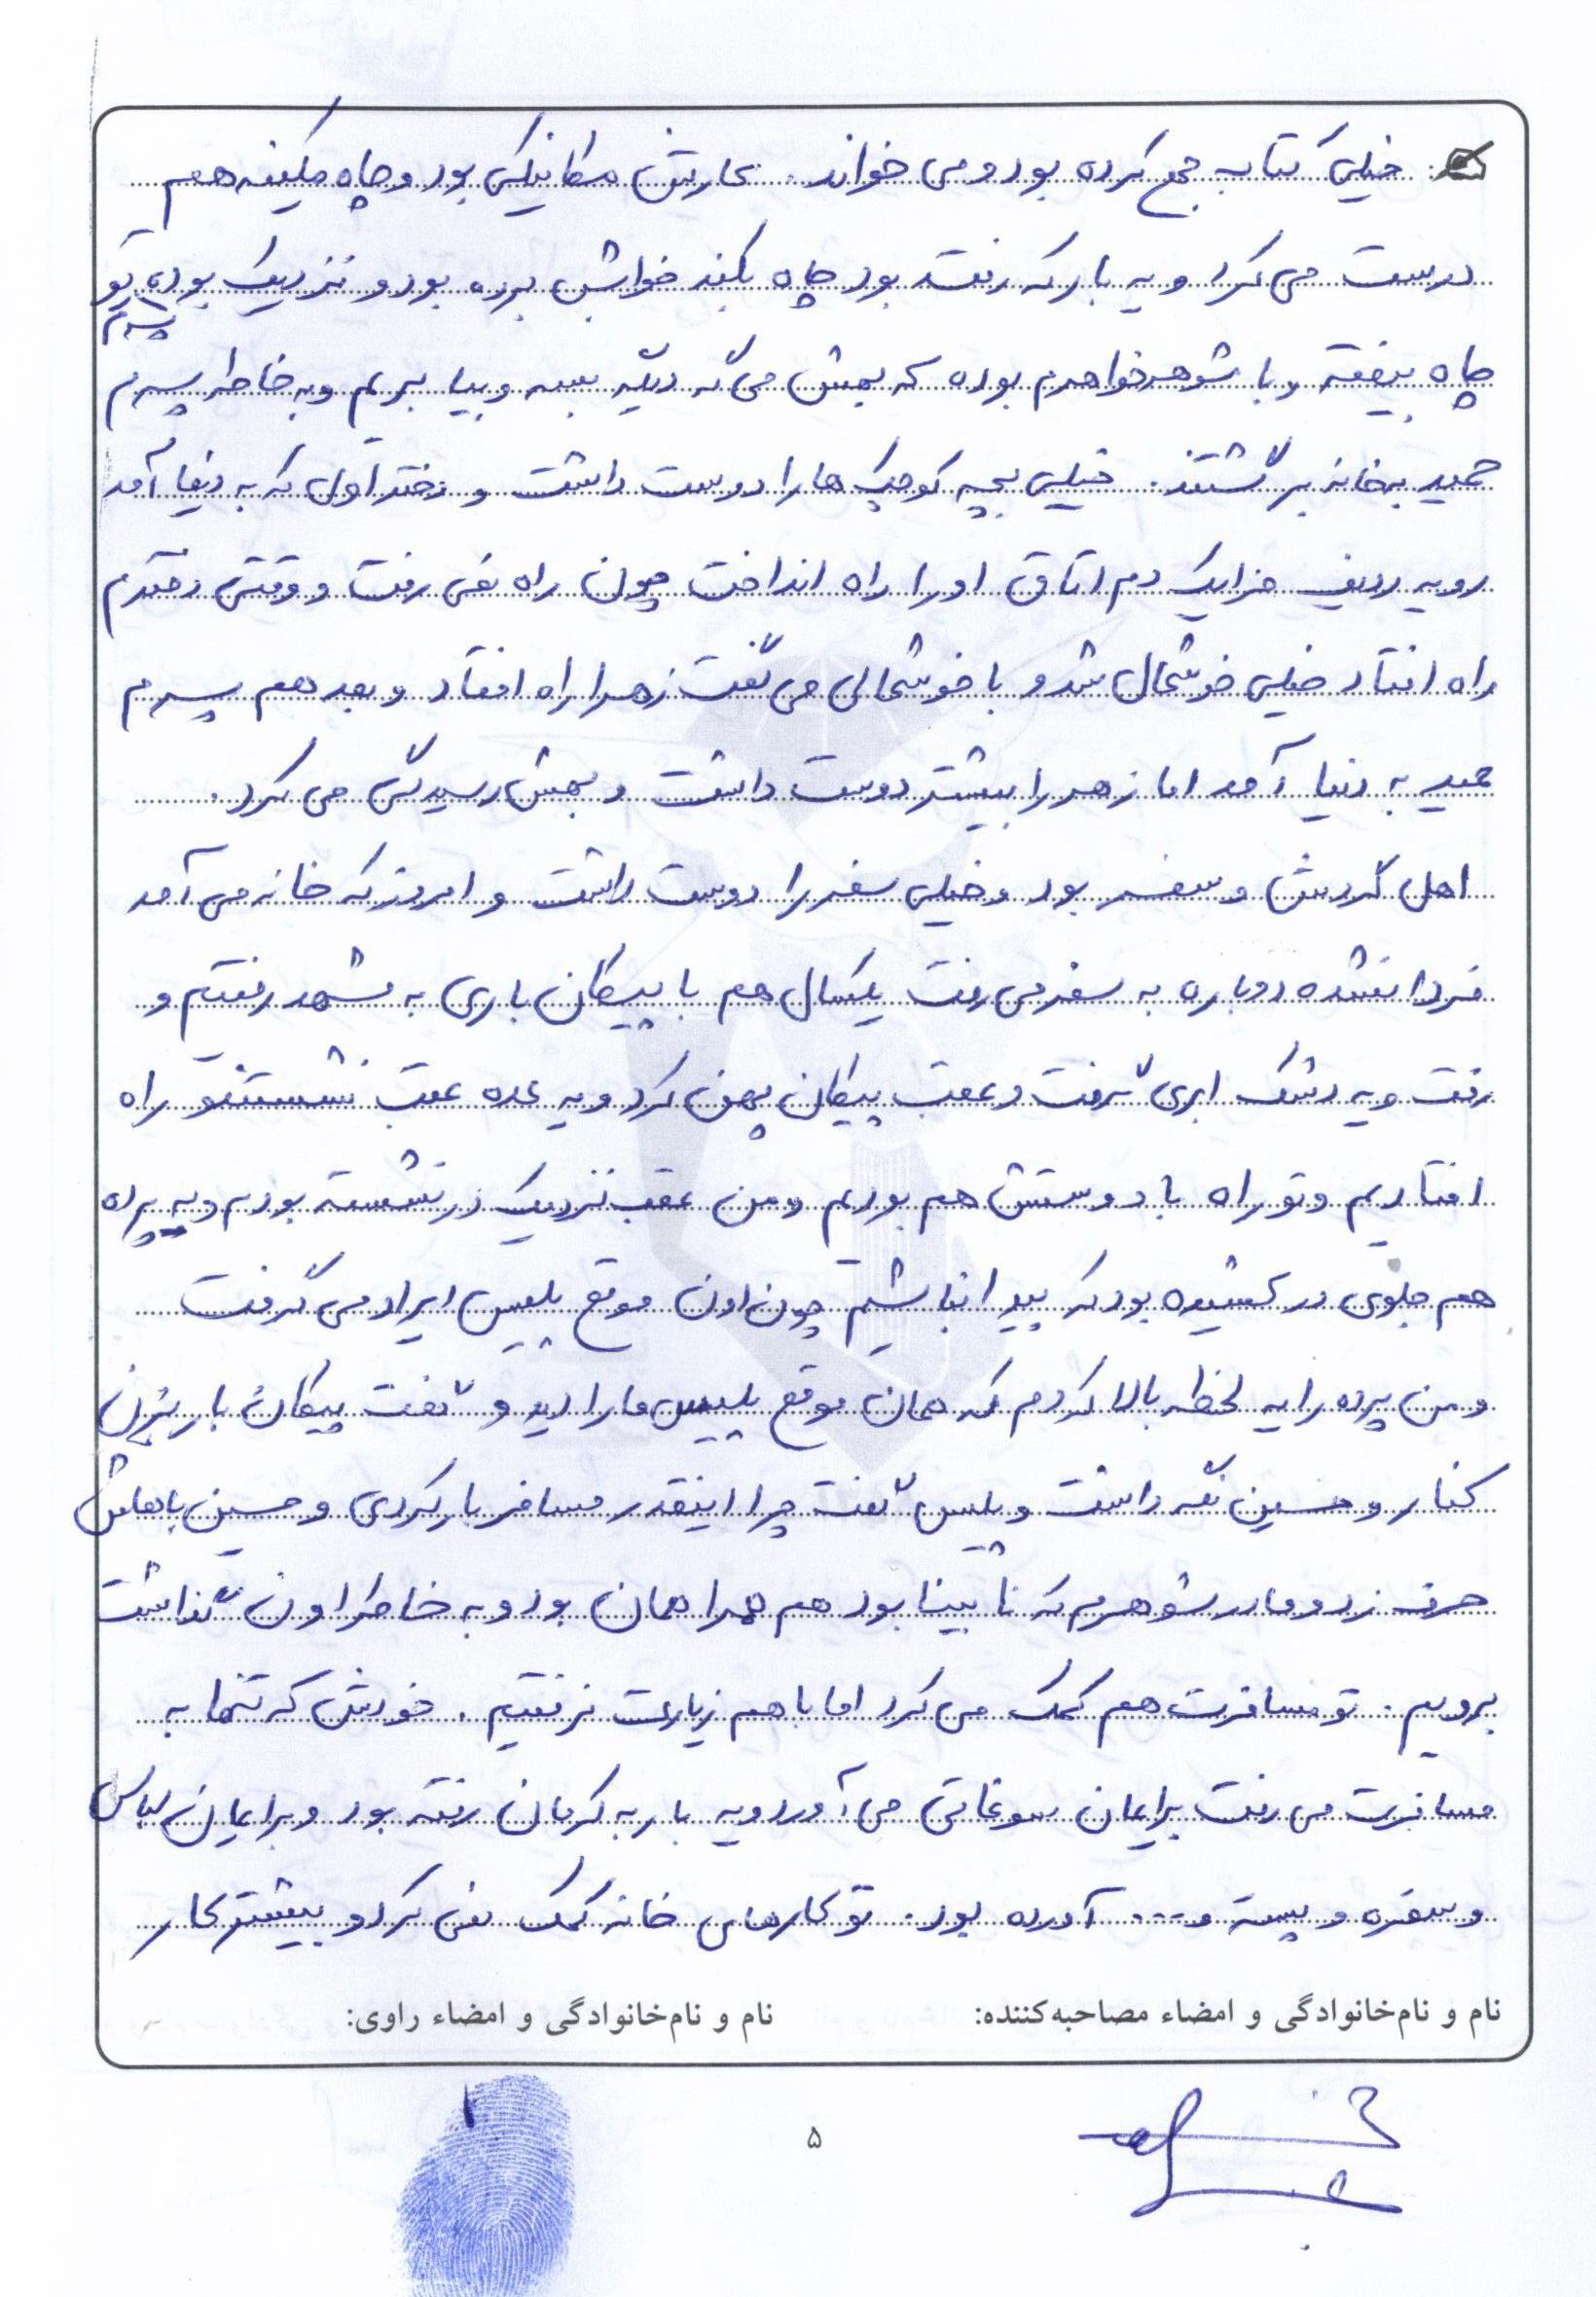 خیلی کتاب جمع کرده بود و می خواند. کارش مکانیکی بود و چاه مکینه هم
درست می کرد و یه بار که رفته بود چاه بکند خوابش برده بود و نزدیک بوده تو
چاه بیفته و با شوهر خواهرم بوده که بهش می گه دیگه بسه و بیا بریم و به خاطر پسرم
حمید به خانه برگشتند. خیلی بچه کوچک ها را دوست داشت و دختر اول که به دنیا آمد
رو یه ردیف دم اتاق او را راه انداخت چون راه نمی رفت و وقتی دخترم
راه افتاد خیلی خوشحال شد و با خوشحالی می گفت زهرا راه افتاد و بعد هم پسرم
حمید به دنیا آمد اما زهرا را بیشتر دوست داشت و بهش رسیدگی می کرد.
اهل گردش و سفر بود و خیلی سفر را دوست داشت و امروز که خانه می آمد
فردا نشده دوباره به سفر می رفت یکسال هم با پیکان باری به مشهد رفتیم و
رفت و یه تشک ابری گرفت و عقب پیکان پهن کرد و یه عده عقب نشستند و راه
افتادیم و تو راه با دوستش هم بودیم و من عقب نزدیک در نشسته بودم و یه پرده
هم جلوی در کشیده بود که پیدا نباشیم چون اون موقع پلیس ایراد می گرفت
و من پرده را یه لحظه بالا کردم که همان موقع پلیس ما را دید و گفت پیکان بار بزن
کنار و حسین نگه داشت و پلیس گفت چرا اینقدر مسافر بار کردی و حسین باهاش
حرف زد و مادر شوهرم که نابینا بود هم همراهمان بود و به خاطر اون گذاشت
برویم. تو مسافرت هم کمک می کرد اما با هم زیارت نرفتیم. خودش که تنها به
مسافرت می رفت برایمان سوغاتی می آورد و یه بار به کرمان رفته بود و برایمان لباس
و سفره و پسته و... آورده بود. تو کارهای خانه کمک نمی کرد و بیشتر کار
نام و نام‌خانوادگی و امضاء مصاحبه‌کننده:
نام و نام‌خانوادگی و امضاء راوی:
۵